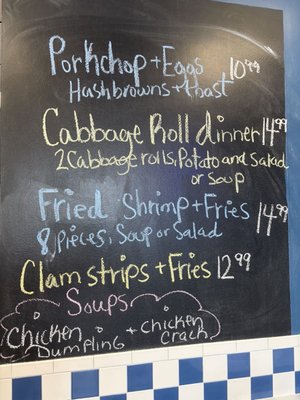 Porkchop + Eggs 10⁹⁹
Hashbrowns + toast
Cabbage Roll dinner 14⁹⁹
2 Cabbage rolls, Potato and salad
or soup
Fried Shrimp + Fries 14⁹⁹
8 Pieces, Soup or Salad
Clam strips + Fries 12⁹⁹
Soups
Chicken Dumpling + chicken crack